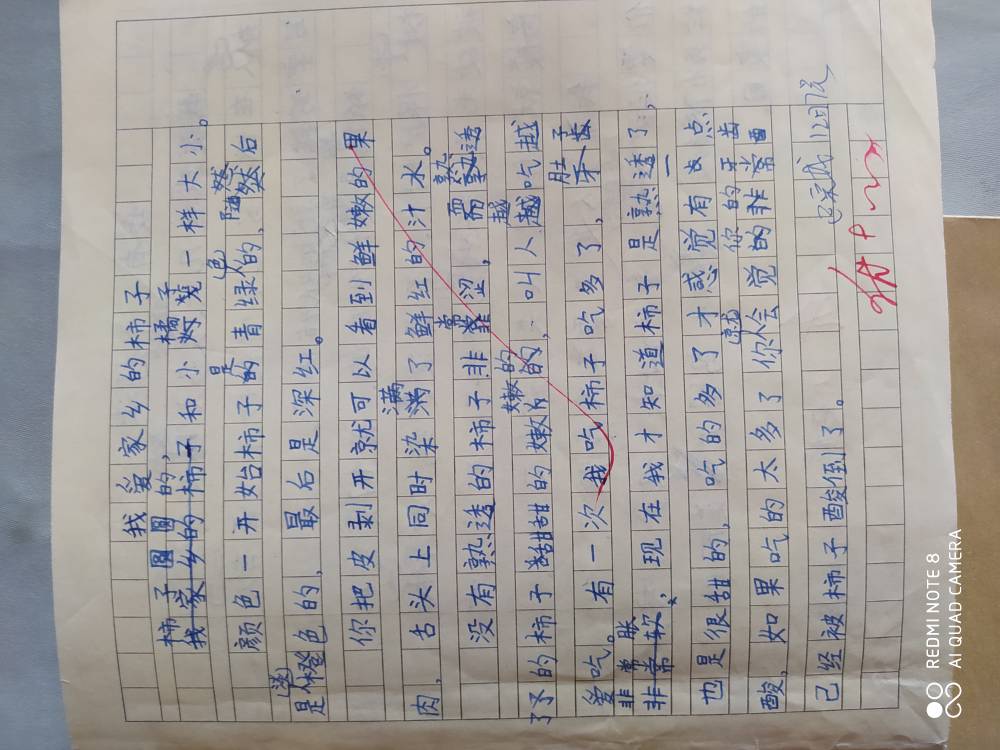 我爱家乡的柿子
柿子圆圆的,橘子
我家乡的柿子和小灯笼一样大小。
颜色一开始柿子是青绿色的,随然后
是橙色的,最后是深红。
你把皮剥开就可以看到鲜嫩的果
肉,舌头上同时染满了鲜红的汁水。
没有熟透的柿子非常涩,而熟透
了的柿子甜甜的嫩嫩的,叫人越吃越
爱吃。有一次我吃柿子吃多了,肚子
非常胀,现在我才知道柿子是熟透了,
也是很甜的,吃的多了才感觉有点
酸,如果吃的太多了你就会觉的你的牙齿
已经被柿子酸倒了。
已完成 12月
REDMI NOTE 8
AI QUAD CAMERA